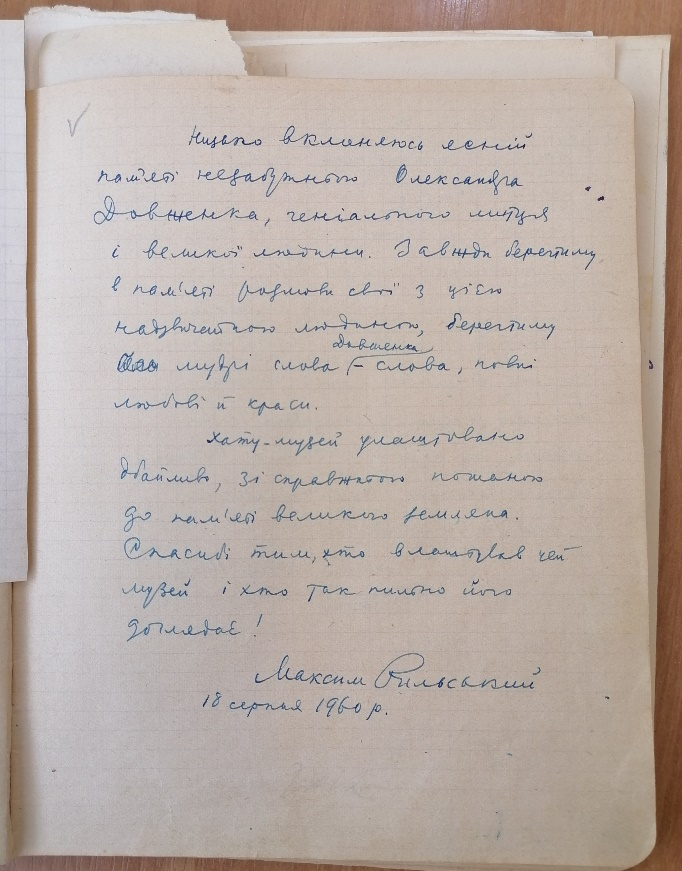 Низько вклоняюсь ясній
пам'яті незабутнього Олександра
Довженка, геніального митця
і великої людини. Завжди берегтиму
в пам'яті розмови свої з цією
надзвичайною людиною, берегтиму
Довженка
мудрі слова – слова, повні
любові й краси.
Хату-музей улаштовано
дбайливо, зі справжньою пошаною
до пам'яті великого земляка.
Спасибі тим, хто влаштував цей
музей і хто так пильно його
доглядає!
Максим Рильський
18 серпня 1960 р.